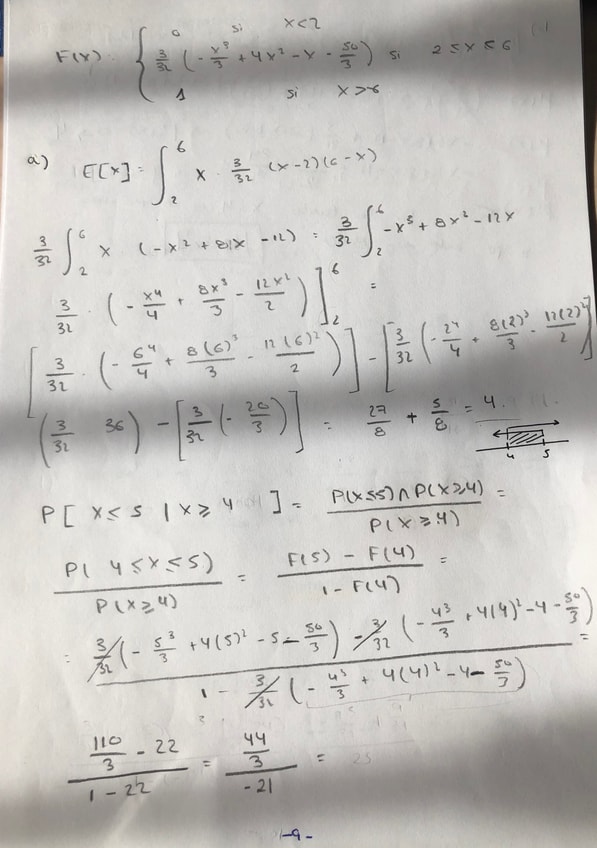 0 si x<2
F(x) { 3/32 (- x³/3 + 4x² - x - 50/3) si 2 ≤ x ≤ 6
1 si x>6
a) E[x] = ∫₂⁶ x · 3/32 (x-2)(6-x)
3/32 ∫₂⁶ x (-x² + 8x - 12) = 3/32 ∫₂⁶ -x³ + 8x² - 12x
3/32 · (- x⁴/4 + 8x³/3 - 12x²/2) ]₂⁶ =
[ 3/32 · (- 6⁴/4 + 8(6)³/3 - 12(6)²/2) ] - [ 3/32 (- 2⁴/4 + 8(2)³/3 - 12(2)²/2) ]
(3/32 36) - [ 3/32 (- 20/3) ] = 27/8 + 5/8 = 4
4 5
P[ x ≤ 5 | x ≥ 4 ] = P(x≤5) ∩ P(x≥4) / P(x ≥ 4) =
P( 4 ≤ x ≤ 5) / P(x≥4) = F(5) - F(4) / 1 - F(4) =
= 3/32 (- 5³/3 + 4(5)² - 5 - 50/3) - 3/32 (- 4³/3 + 4(4)² - 4 - 50/3) / 1 - 3/32 (- 4³/3 + 4(4)² - 4 - 50/3) =
110/3 - 22 / 1 - 22 = 44/3 / -21 =
-9-